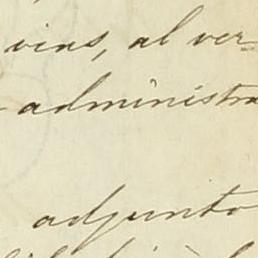 vins, al ver-
administra
adjunto